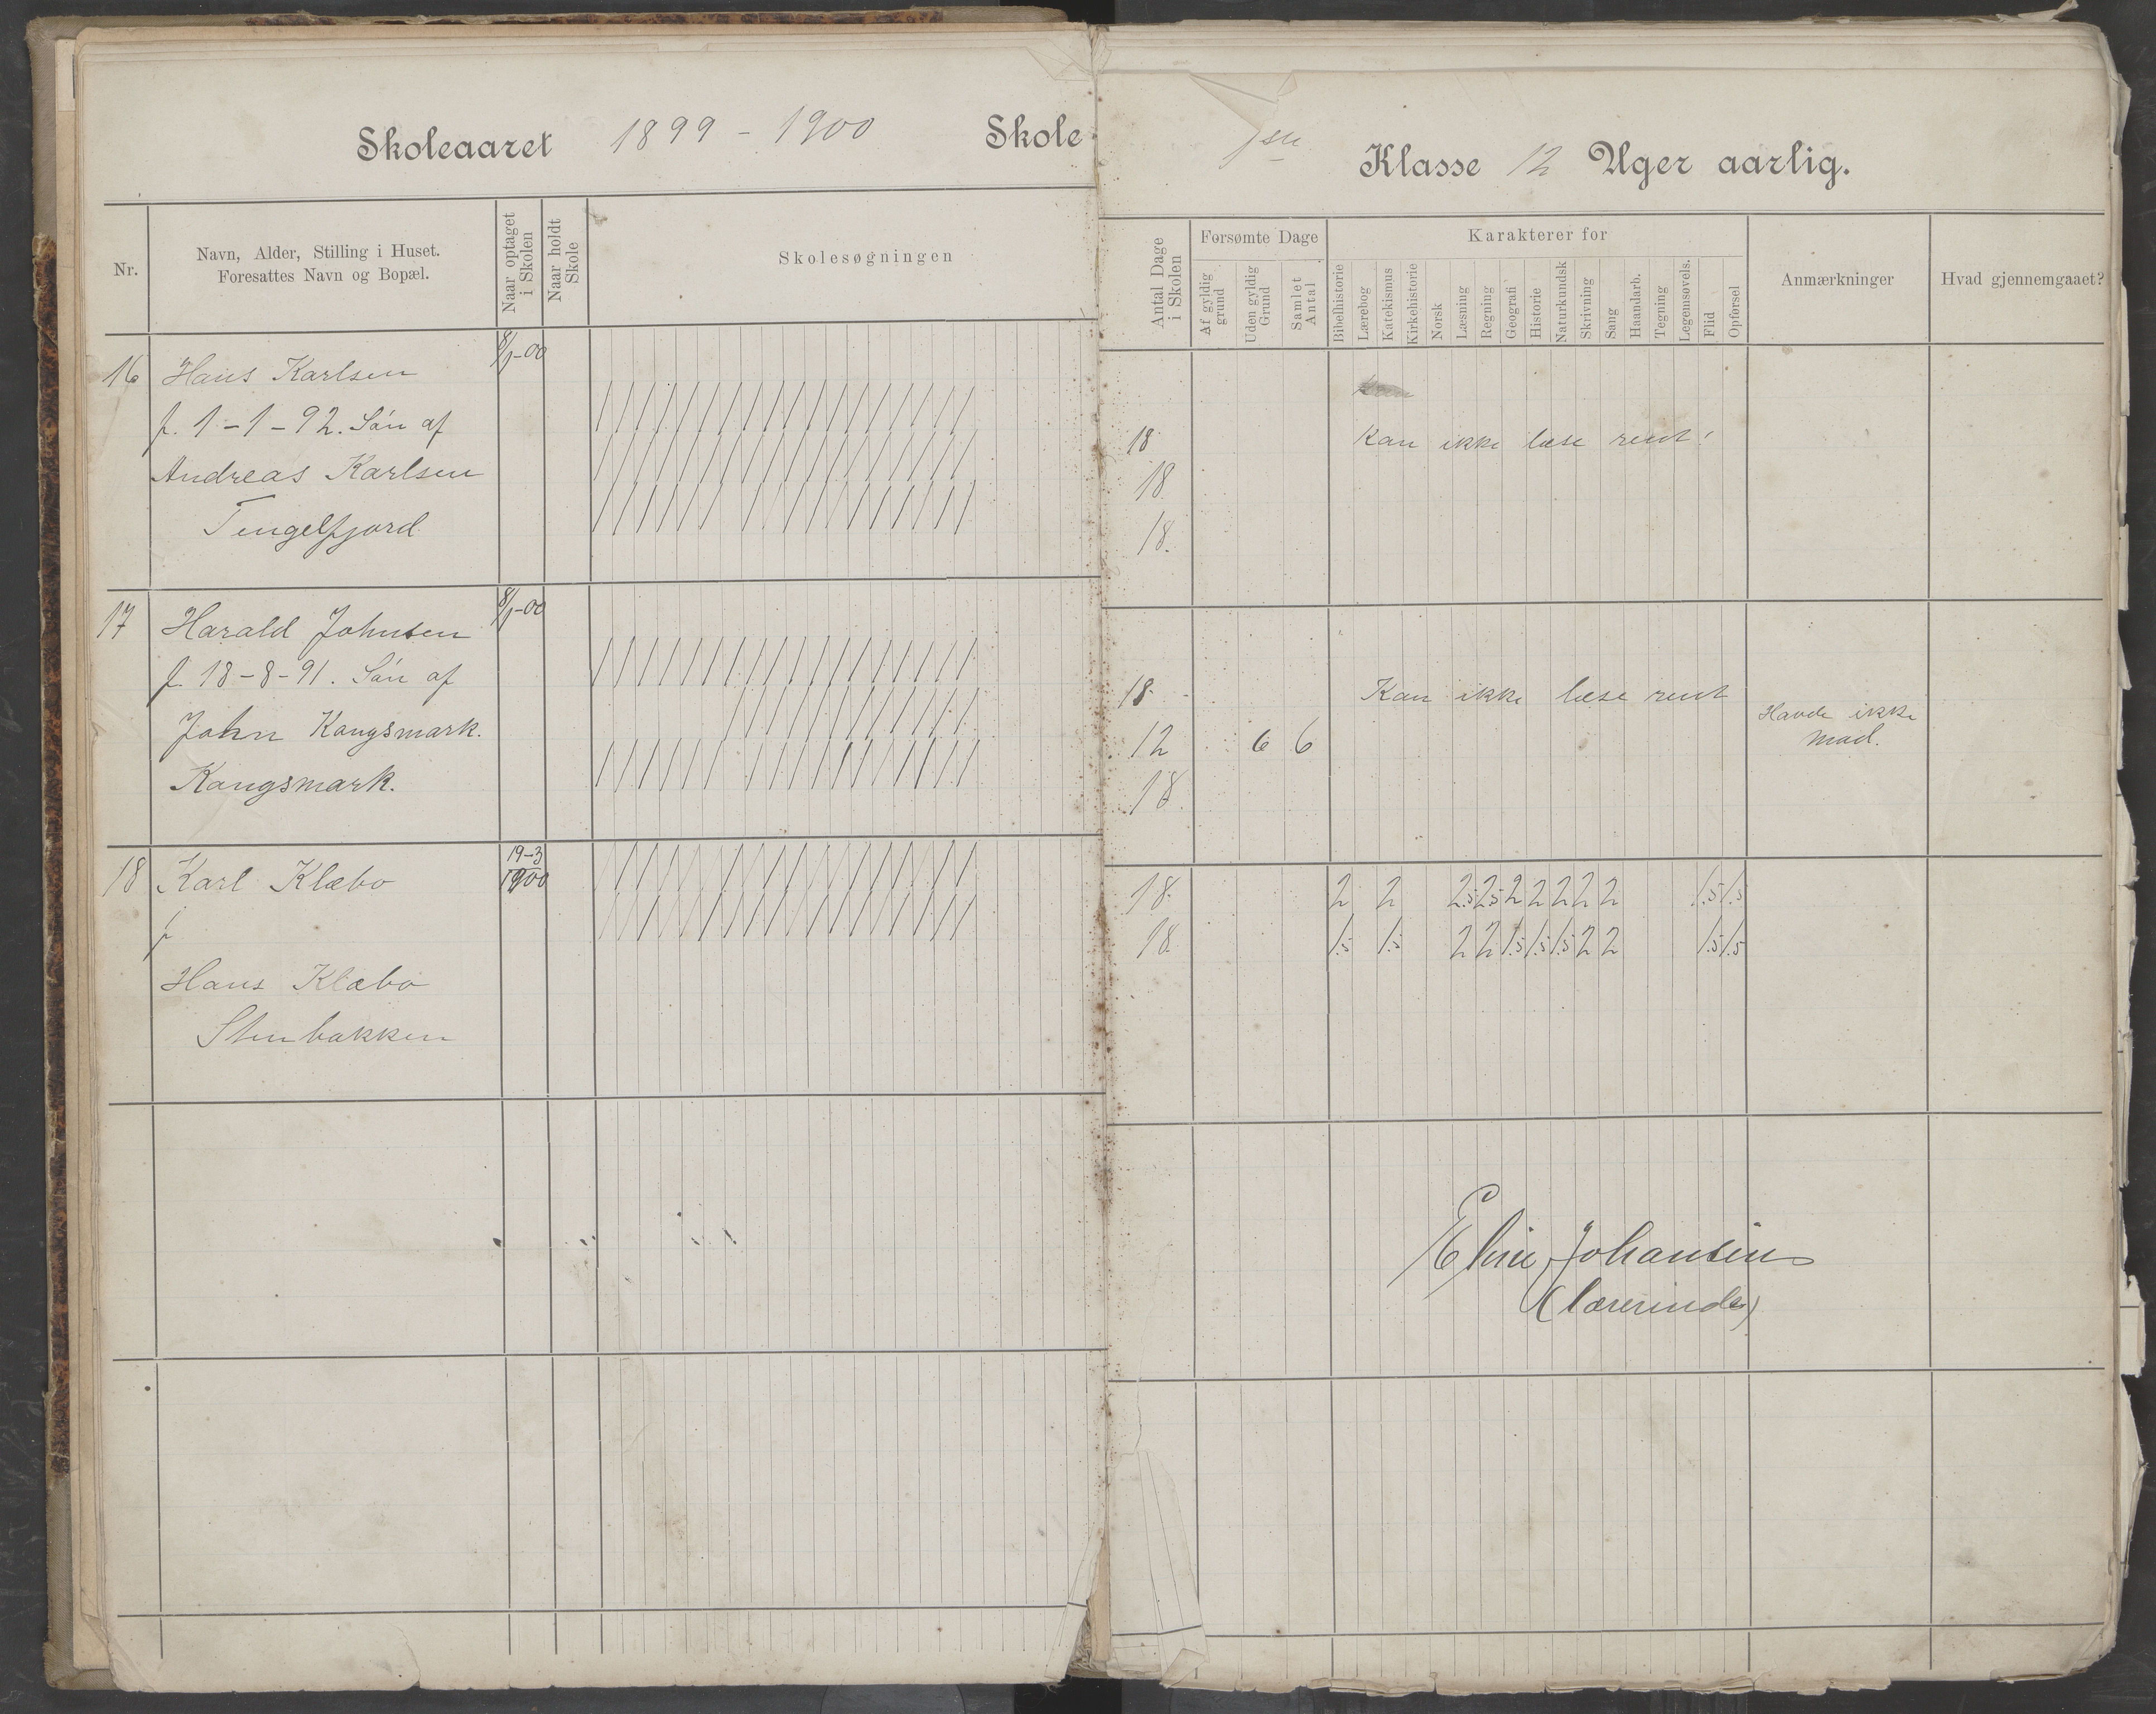 Skoleaaret 1899 - 1900 Skole
Nr.
Navn, Alder, Stilling i Huset.
Foresattes Navn og Bopæl.
Naar optaget
i Skolen
Naar holdt
Skole
Skolesøgningen
16 Hans Karlsen 8/1-00
f. 1-1-92. Søn af
Andreas Karlsen
Tengelfjord
17 Harald Johnsen 8/1-00
f. 18-8-91. Søn af
John Kangsmark.
Kangsmark.
18 Karl Klæbo 19-3
1900
f
Hans Klæbo
Stenbakken
Klasse 12 Uger aarlig.
Antal Dage
i Skolen
Forsømte Dage
Af gyldig
grund
Uden gyldig
Grund
Samlet
Antal
Karakterer for
Bibelhistorie
Lærebog
Katekismus
Kirkehistorie
Norsk
Læsning
Regning
Geografi
Historie
Naturkundsk
Skrivning
Sang
Haandarb.
Tegning
Legemsøvels.
Flid
Opførsel
Anmærkninger
Hvad gjennemgaaet?
18 Kan ikke læse rent!
18
18.
18. Kan ikke læse rent
12 6 6 Havde ikke
mad.
18
18. 2 2 2.5 2.5 2 2 2 2 2 1.5 1.5
18 1.5 1.5 2 2 1.5 1.5 1.5 2 2 1.5 1.5
Johansen
(lærerinde)